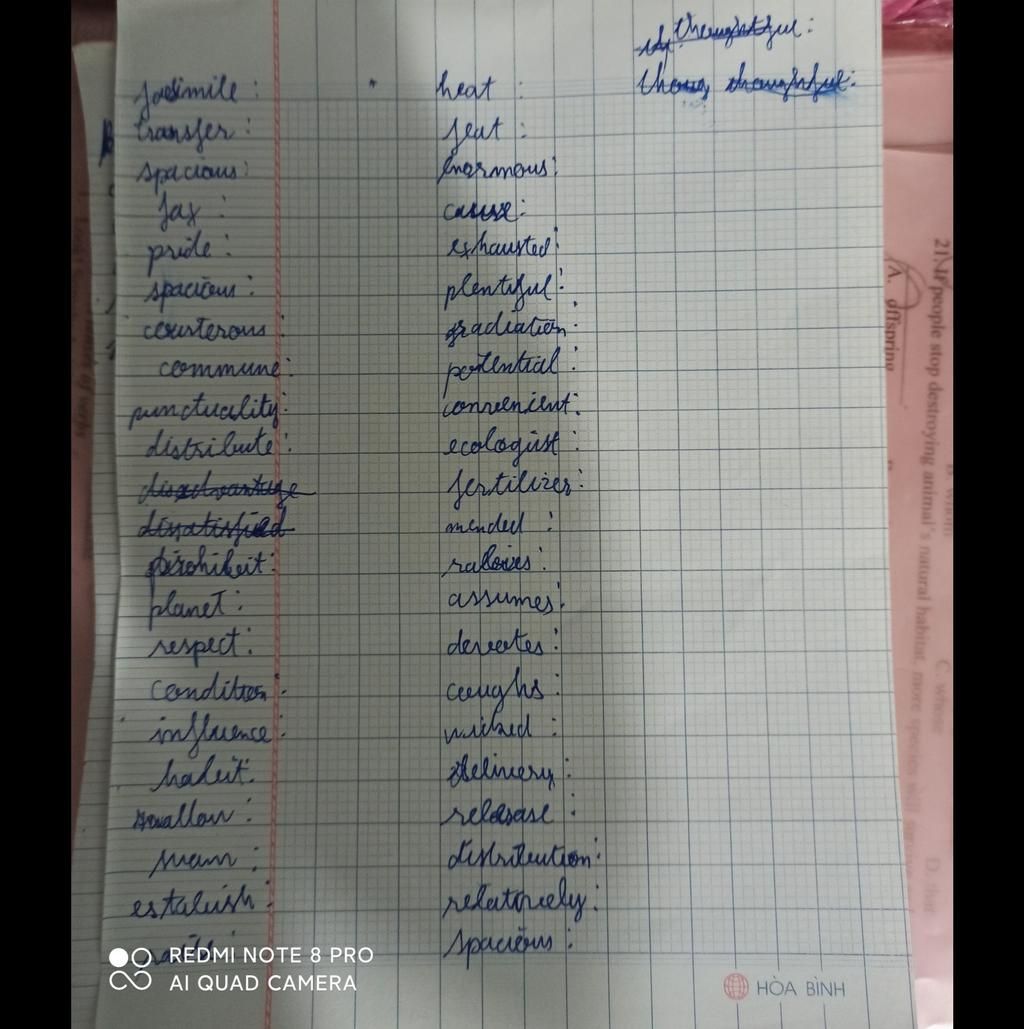 thoughtful:
thoughtful:
facsimile:
transfer:
spacious:
fax:
pride:
spacious:
courterous:
commune:
punctuality:
distribute:
disadvantage
dissatisfied
prohibit:
planet:
respect:
condition:
influence:
habit:
swallow:
swam:
estabish:
heat:
feat:
enormous:
cause:
exhausted:
plentiful:
gradiation:
potential:
convenient:
ecologist:
fertilizer:
mended:
assumes:
devotes:
coughs:
wicked:
delivery:
release:
distribution:
relatively:
spacious:
REDMI NOTE 8 PRO
AI QUAD CAMERA
HÒA BÌNH
21. If people stop destroying animal's natural habitat, more species will
A. offspring
B. whom
C. whose
D. that